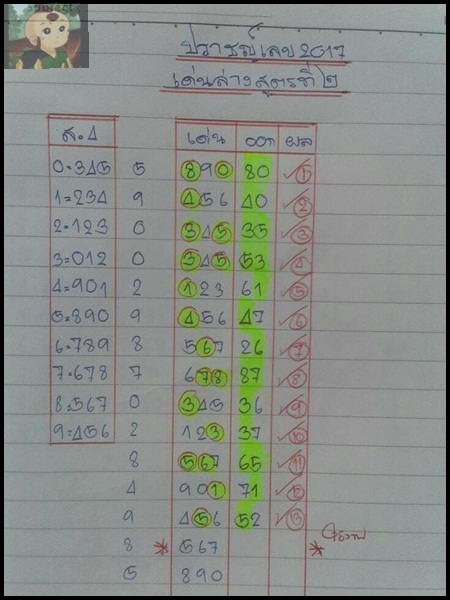 ปราชญ์เลข 2017
เด่นล่าง สูตรที่ ๒
ส.๔ เด่น ออก ผล
0=345 5 890 80 ✓ 1
1=234 9 456 40 ✓ 2
2=123 0 345 35 ✓ 3
3=012 0 345 53 ✓ 4
4=901 2 123 61 ✓ 5
5=890 9 456 47 ✓ 6
6=789 8 567 26 ✓ 7
7=678 7 678 87 ✓ 8
8=567 0 345 36 ✓ 9
9=456 2 123 37 ✓ 10
8 567 65 ✓ 11
4 901 71 ✓ 12
9 456 52 ✓ 13
8 * 567 *
5 890